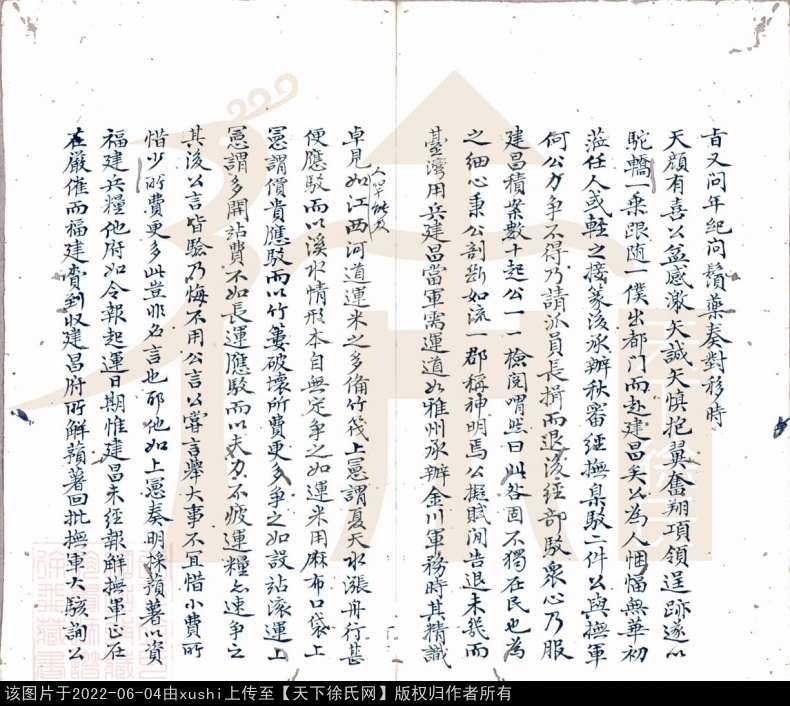 旨又问年紀问鬚藥奏對移時
天顔有喜公益感激矢誠矢慎抱翼奮翔項領逞跡遂以
駝轎一乗跟随一僕出都门而赴建昌矣公为人悃愊無華初
蒞任人或軽之接篆后承辦秋審经撫臬駁二件公與撫軍
何公力争不得乃請派員長揖而退后经部駁衆心乃服
建昌積案数十起公一一檢閲喟然曰此各固不獨在民也为
之细心秉公剖断如流一郡稱神明焉公擬賦闲告退未㡬而
臺灣用兵建昌當軍需運道如雅州承辦金川軍務時其精識
卓見如江西河道運米之多備竹筏上憲謂夏天水漲舟行甚
便應駁而以溪水情形本自無定争之如運米用麻布口袋上
憲謂價貴應駁而以竹簍破壊所费更多争之如設站滚運上
憲謂多開站费不如長運應駁而以夫力不疲運糧亦速争之
其後公言皆驗乃悔不用公言公嘗言舉大事不冝惜小费所
惜少所费更多此豈非名言也耶他如上憲奏明採蘋薯以資
福建兵糧他府如令報起運日期惟建昌未经報解撫軍正在
在厳催而福建賫到収建昌府所解蘋薯回批撫軍大駭詢公
该图片于2022-06-04由xushi上传至【天下徐氏网】版权归作者所有